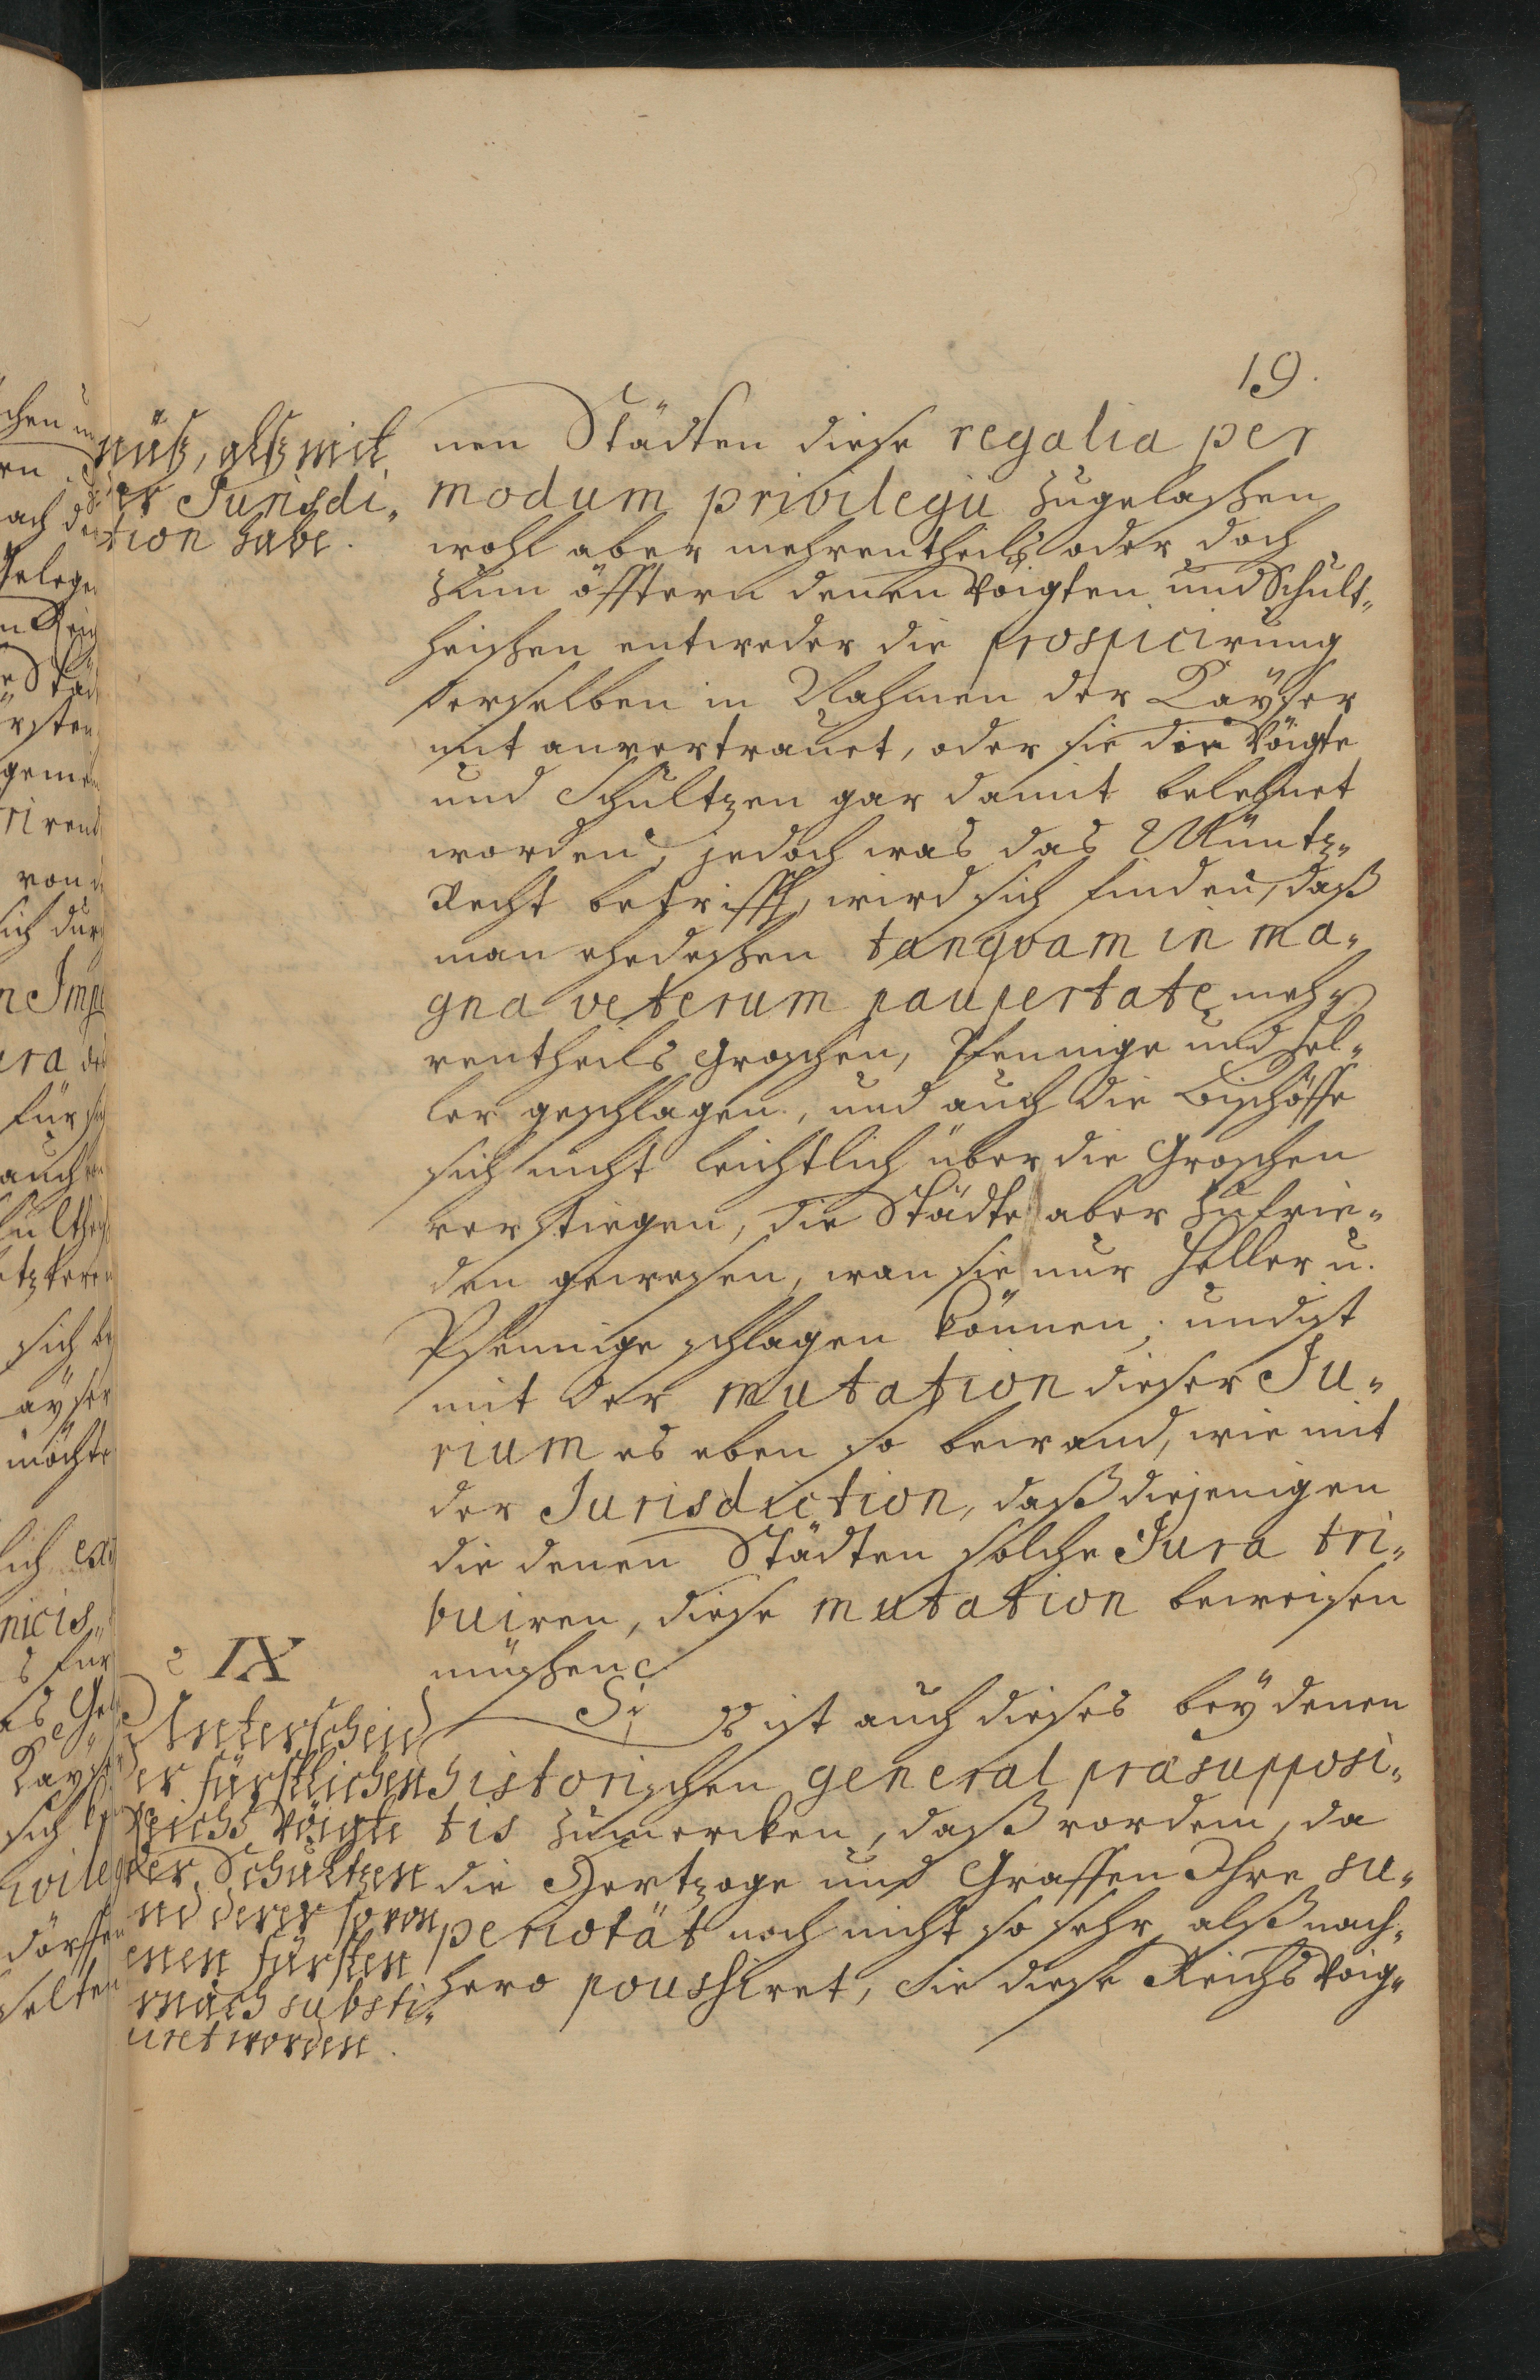 19.
nüß, alß mit
er Jurisdi„
tion habe.
nen Städten diese regalia per
modum privilegii zugelaßen,
wohl aber mehrentheils oder doch
zum öfftern denen Vöigten und Schult„
heißen entweder die prospicirung
derselben in Nahmen der Kayser
mit anvertrauet, oder sie die Vöigte
und Schultzen gar damit belehnet
worden, jedoch was das Müntz„
Recht betrifft, wird sich finden, daß
man ehedeßen tanqvam in ma„
gna veterum paupertate meh„
rentheils Groschen, Pfennige und Hel„
ler geschlagen, und auch die Bischöffe
sich nicht leichtlich über die Groschen
verstiegen, die Städte aber zufrie„
den gewesen, wan sie nur Heller u.
Pfennige schlagen können; und ist
mit der mutation dieser Ju„
rium es eben so bewand, wie mit
der Jurisdiction, daß diejenigen
die denen Städten solche Jura tri„
buiren, diese mutation beweisen
müßen.
IX
Unterscheid
er fürstlichen
Reichs Vöigte
der Schultzen
nd derer so von
enen fürsten
mach substi„
uret worden.
Es ist auch dieses bey denen
historischen general præsupposi„
tis zumercken, daß vordem, da
die Hertzoge und Graffen Ihre su„
periotät noch nicht so sehr, alß nach„
hero poussiret, Sie diese Reichs Voig„